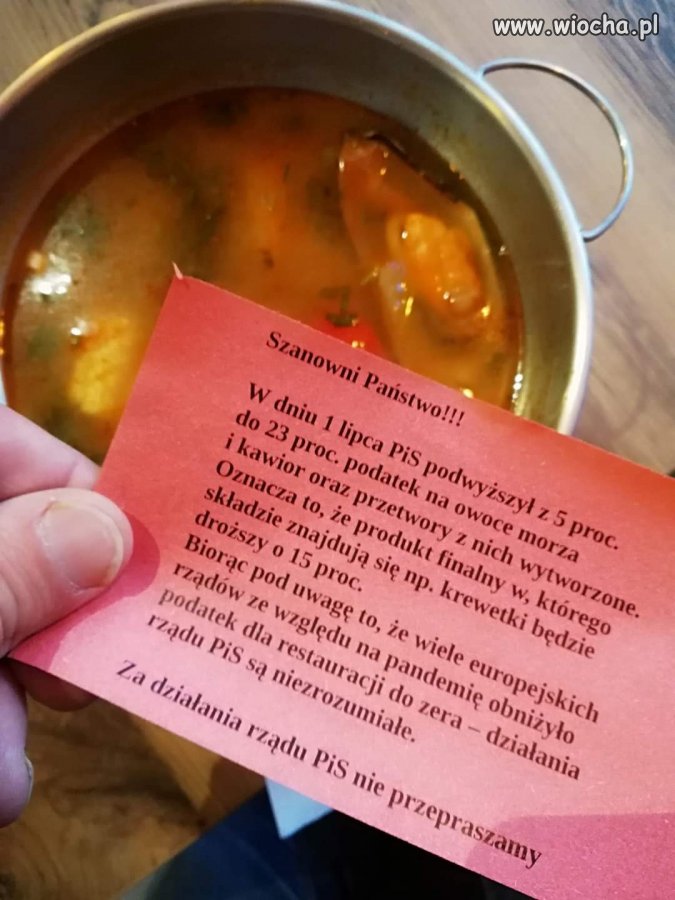 www.wiocha.pl
Szanowni Państwo!!!
W dniu 1 lipca PiS podwyższył z 5 proc.
do 23 proc. podatek na owoce morza
i kawior oraz przetwory z nich wytworzone.
Oznacza to, że produkt finalny w, którego
składzie znajdują się np. krewetki będzie
droższy o 15 proc.
Biorąc pod uwagę to, że wiele europejskich
rządów ze względu na pandemię obniżyło
podatek dla restauracji do zera – działania
rządu PiS są niezrozumiałe.
Za działania rządu PiS nie przepraszamy